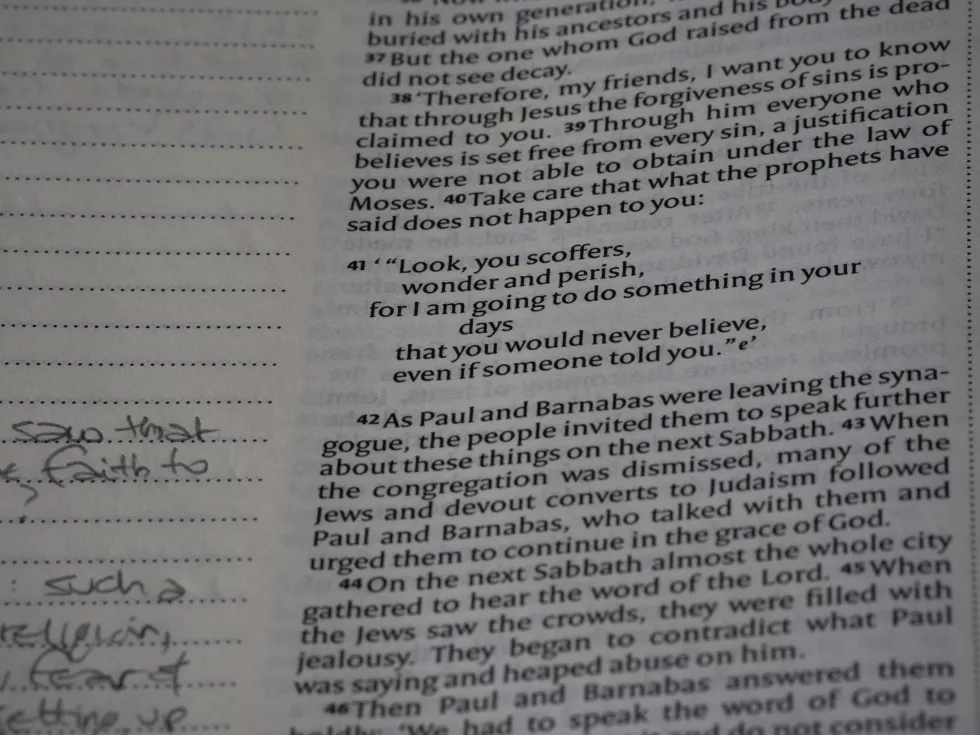 saw that
faith to
such a
religion,
fear &
setting up
in his own generation,
buried with his ancestors and his body
³⁷But the one whom God raised from the dead
did not see decay.
³⁸‘Therefore, my friends, I want you to know
that through Jesus the forgiveness of sins is pro-
claimed to you. ³⁹Through him everyone who
believes is set free from every sin, a justification
you were not able to obtain under the law of
Moses. ⁴⁰Take care that what the prophets have
said does not happen to you:
⁴¹ ‘“Look, you scoffers,
wonder and perish,
for I am going to do something in your
days
that you would never believe,
even if someone told you.”ᵉ’
⁴²As Paul and Barnabas were leaving the syna-
gogue, the people invited them to speak further
about these things on the next Sabbath. ⁴³When
the congregation was dismissed, many of the
Jews and devout converts to Judaism followed
Paul and Barnabas, who talked with them and
urged them to continue in the grace of God.
⁴⁴On the next Sabbath almost the whole city
gathered to hear the word of the Lord. ⁴⁵When
the Jews saw the crowds, they were filled with
jealousy. They began to contradict what Paul
was saying and heaped abuse on him.
⁴⁶Then Paul and Barnabas answered them
boldly: ‘We had to speak the word of God to
and do not consider